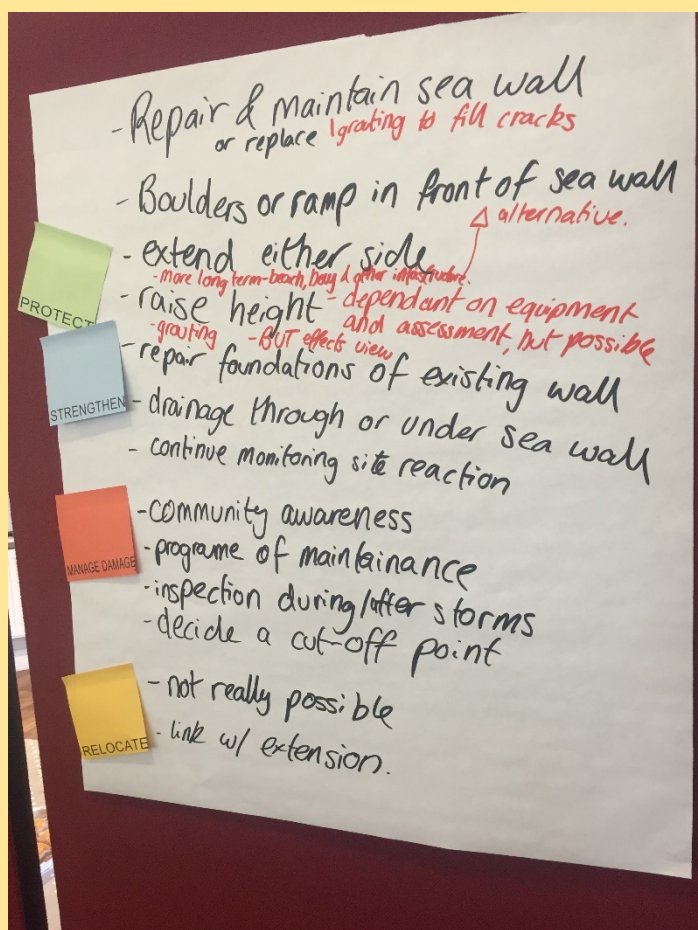 - Repair & maintain sea wall
or replace
grouting to fill cracks
- Boulders or ramp in front of sea wall
alternative.
- extend either side
- More long term-beach, bay & other
PROTECT
- raise height
- dependant on equipment
and assessment, but possible
- grouting
- BUT effects view
- repair foundations of existing wall
STRENGTHEN
- drainage through or under sea wall
- continue monitoring site reaction
- community awareness
MANAGE DAMAGE
- programe of maintainance
- inspection during/after storms
- decide a cut-off point
- not really possible
RELOCATE
- link w/ extension.